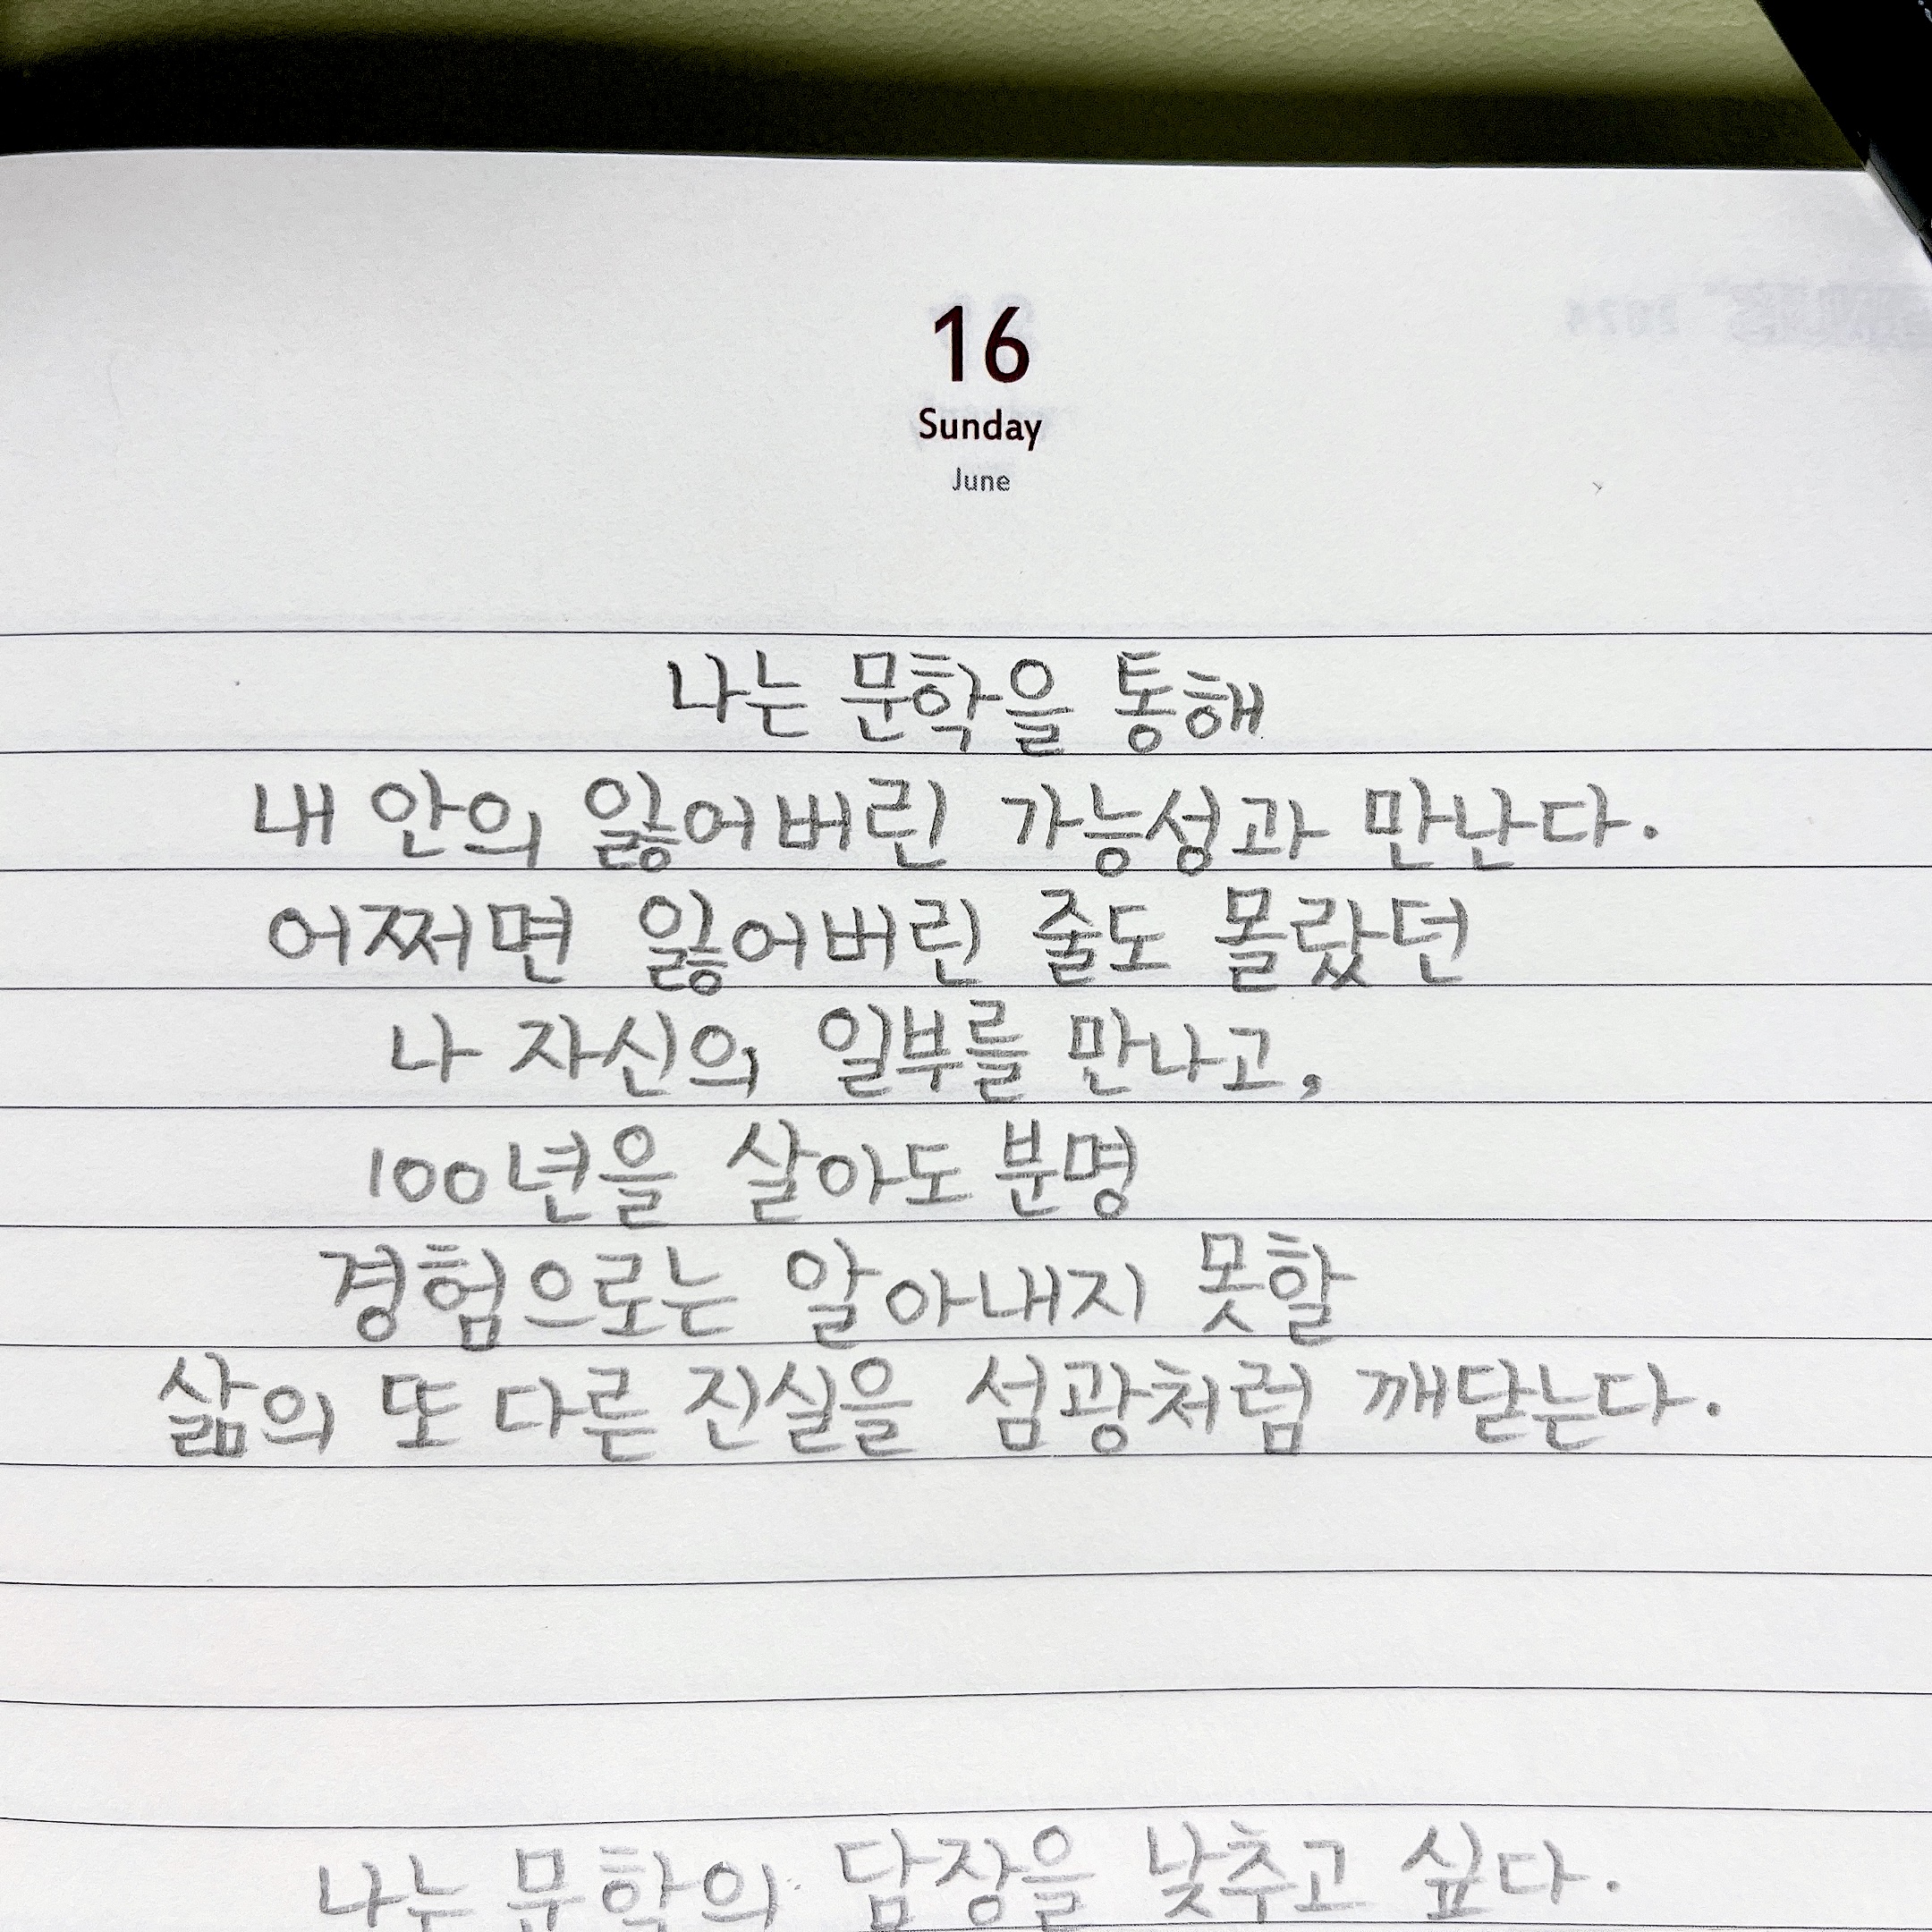 16
Sunday
June
나는 문학을 통해
내 안의 잃어버린 가능성과 만난다.
어쩌면 잃어버린 줄도 몰랐던
나 자신의 일부를 만나고,
100년을 살아도 분명
경험으로는 알아내지 못할
삶의 또 다른 진실을 섬광처럼 깨닫는다.
나는 문학의 담장을 낮추고 싶다.